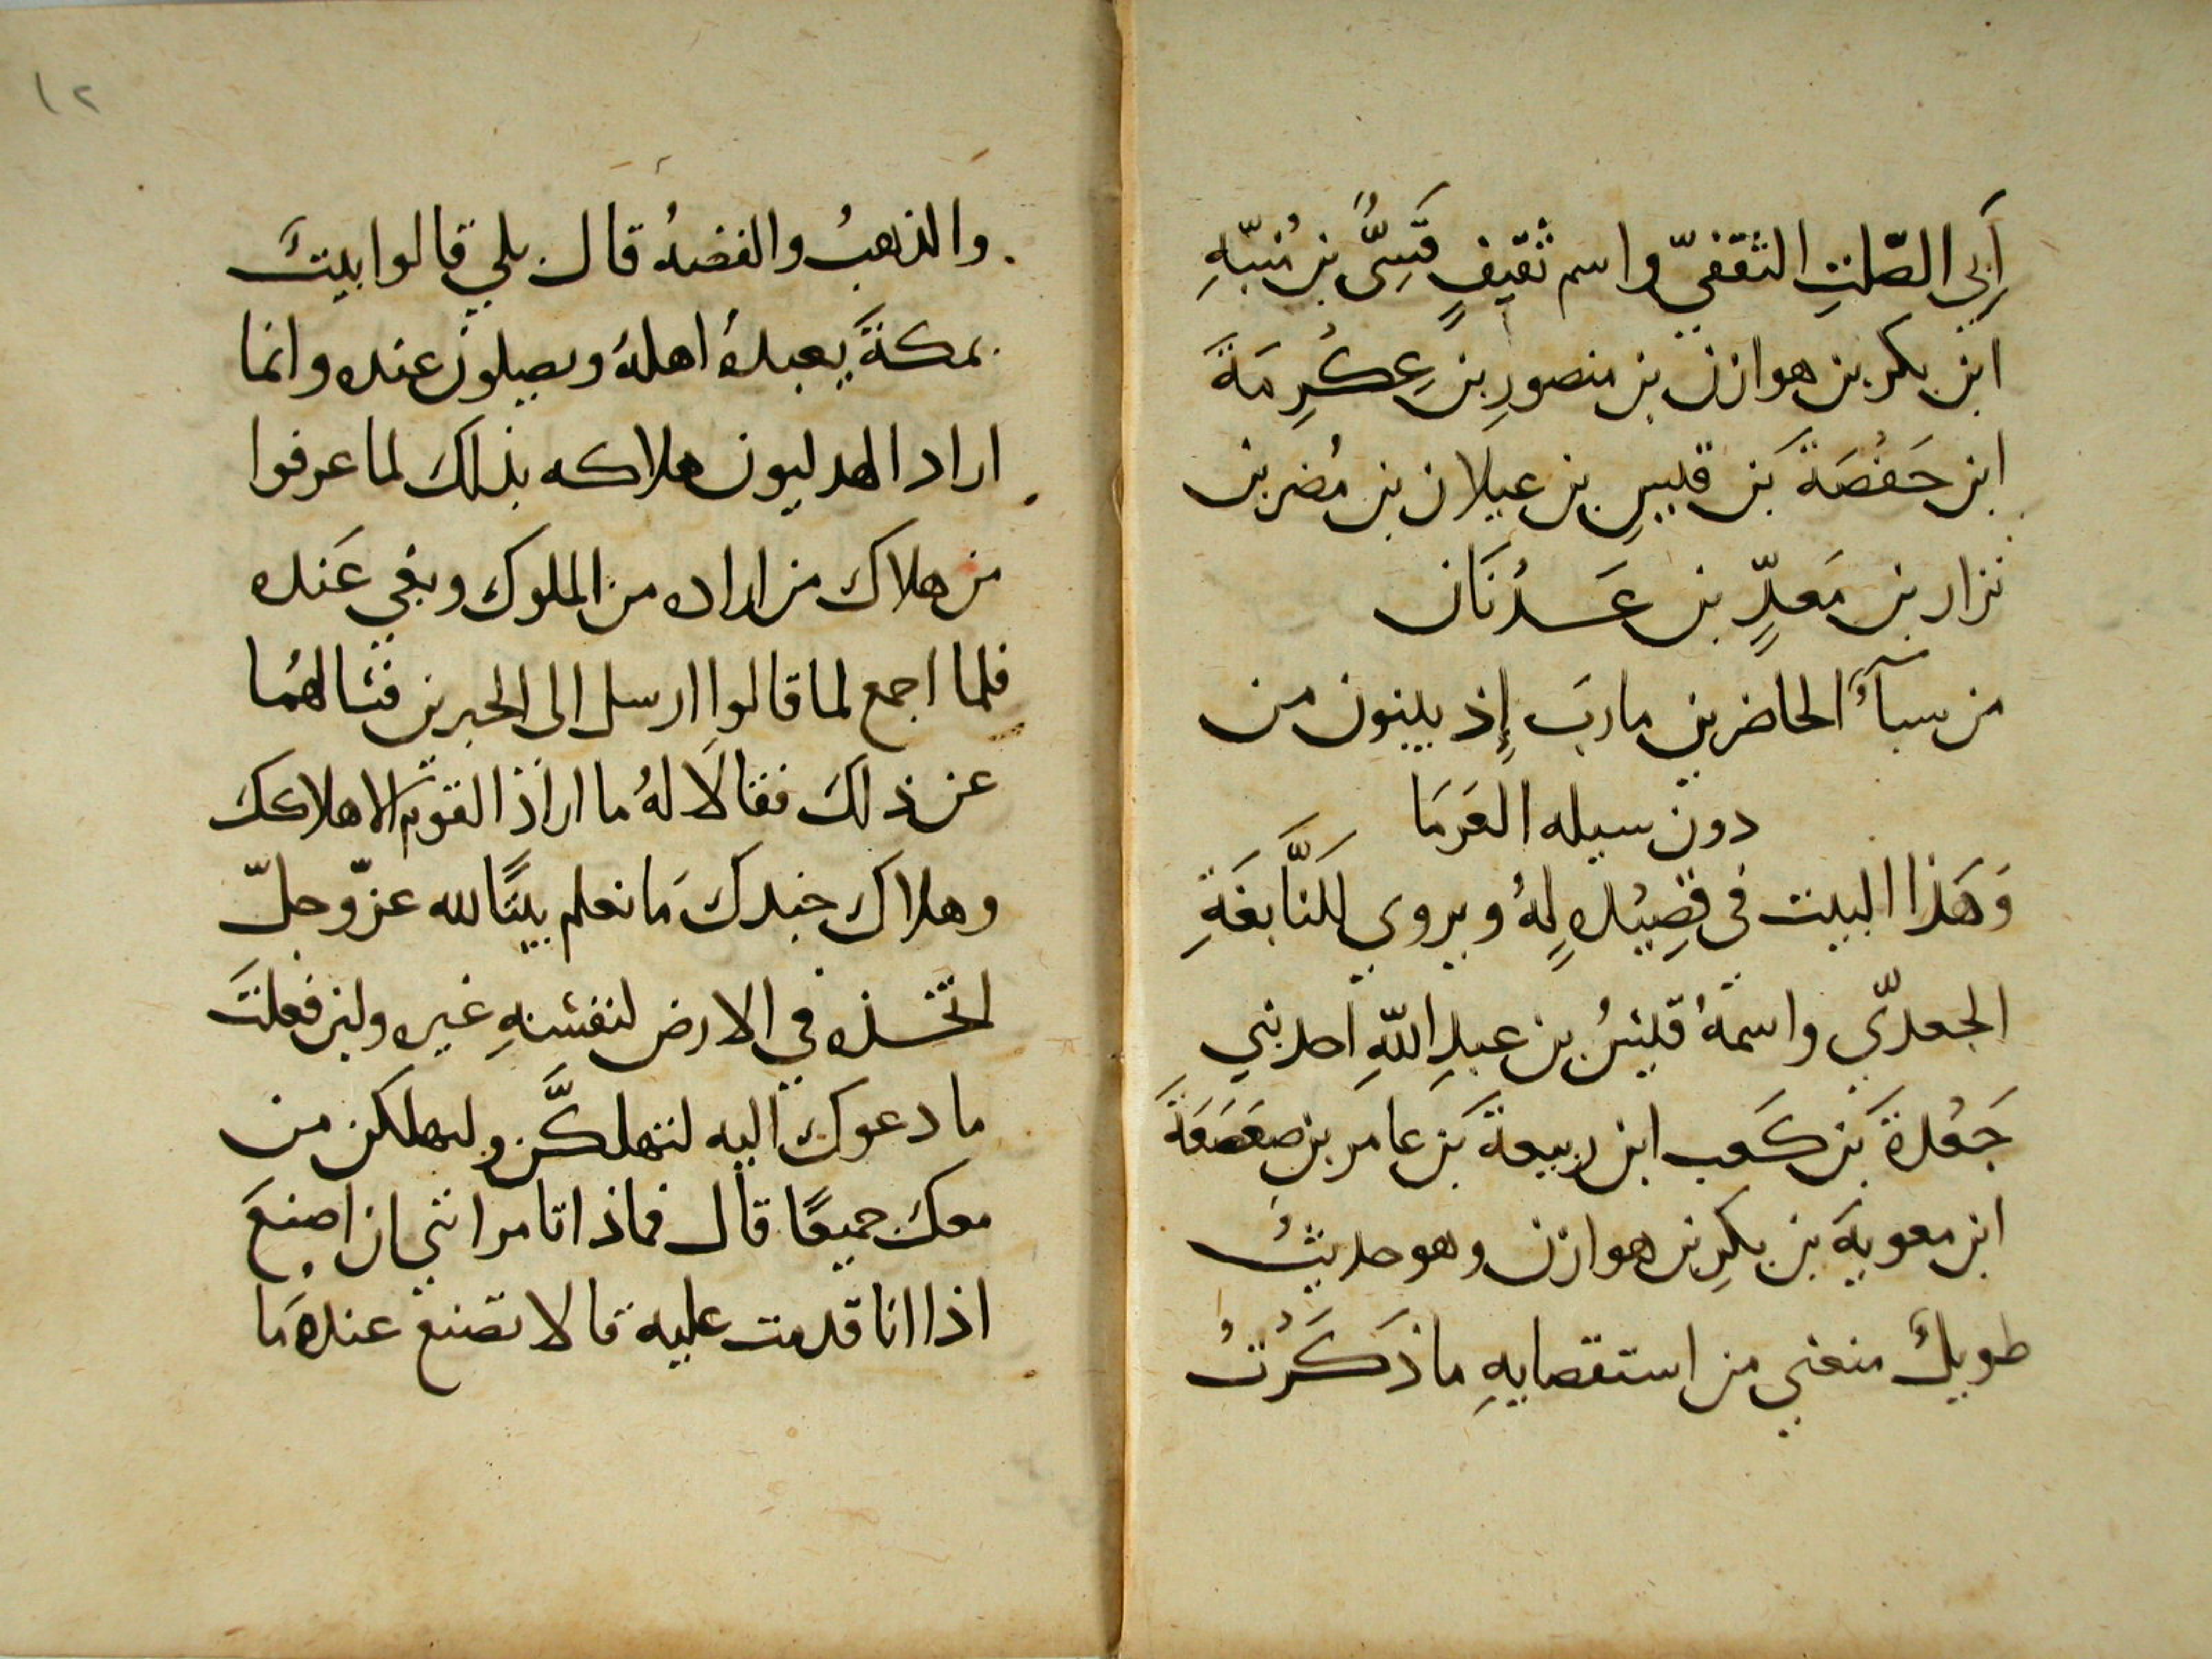 أَبِي الصّلتِ الثقفيّ واسم ثقيفٍ قَسِىُّ بن مُنبّهِ
ابن بكر بن هوازن بن منصورِ بن عِكْرِمَةَ
ابن حَفْصَةَ بن قيسِ بن عيلان بن مُضر بن
نزار بن مَعدٍّ بن عَدْنَان
من سبآءَ الحاضرين مارب إِذ يبنون من
دون سيله العَرمَا
وَهَذا البيت في قصِيْدهٍ لهُ ويروي للنَّابغَةِ
الجعدّي واسمهُ قيْسُ بن عبدِ اللّهِ احد بني
جَعْدةَ بن كَعب ابن ربيعةَ بن عامر بن صعَصَعَةَ
ابن معويةَ بن بكرِ بن هوازن وهو حديثُ
طويلُ منعني من استقصايهِ ما ذكَرْتُ
١٢
والذهبُ والفضهُ قال بلي قالوا بيتَ
بمكةَ يعبدهُ اهلهُ ويصلون عنده وانما
اراد الهدليون هلاكه بذلك لما عرفوا
من هلاك من اراده من الملوك وبغي عَنده
فلما اجمع لما قالوا ارسل الى الحبرين فسالهُما
عن ذلكَ فقالَا لهُ ما اراد القوم الا هلاككَ
وهلاكَ جندكَ مَا نعلم بيتًا لله عزّ وجلّ
اتخذه في الارض لنفسْهِ غيره ولين فعلتَ
ما دعوك اليه لتهلكَّن وليهلكن من
معك جميعًا قال فماذا تامرانني ان اصنعَ
اذا انا قدمت عليه قالا تصنع عندهُ مَا